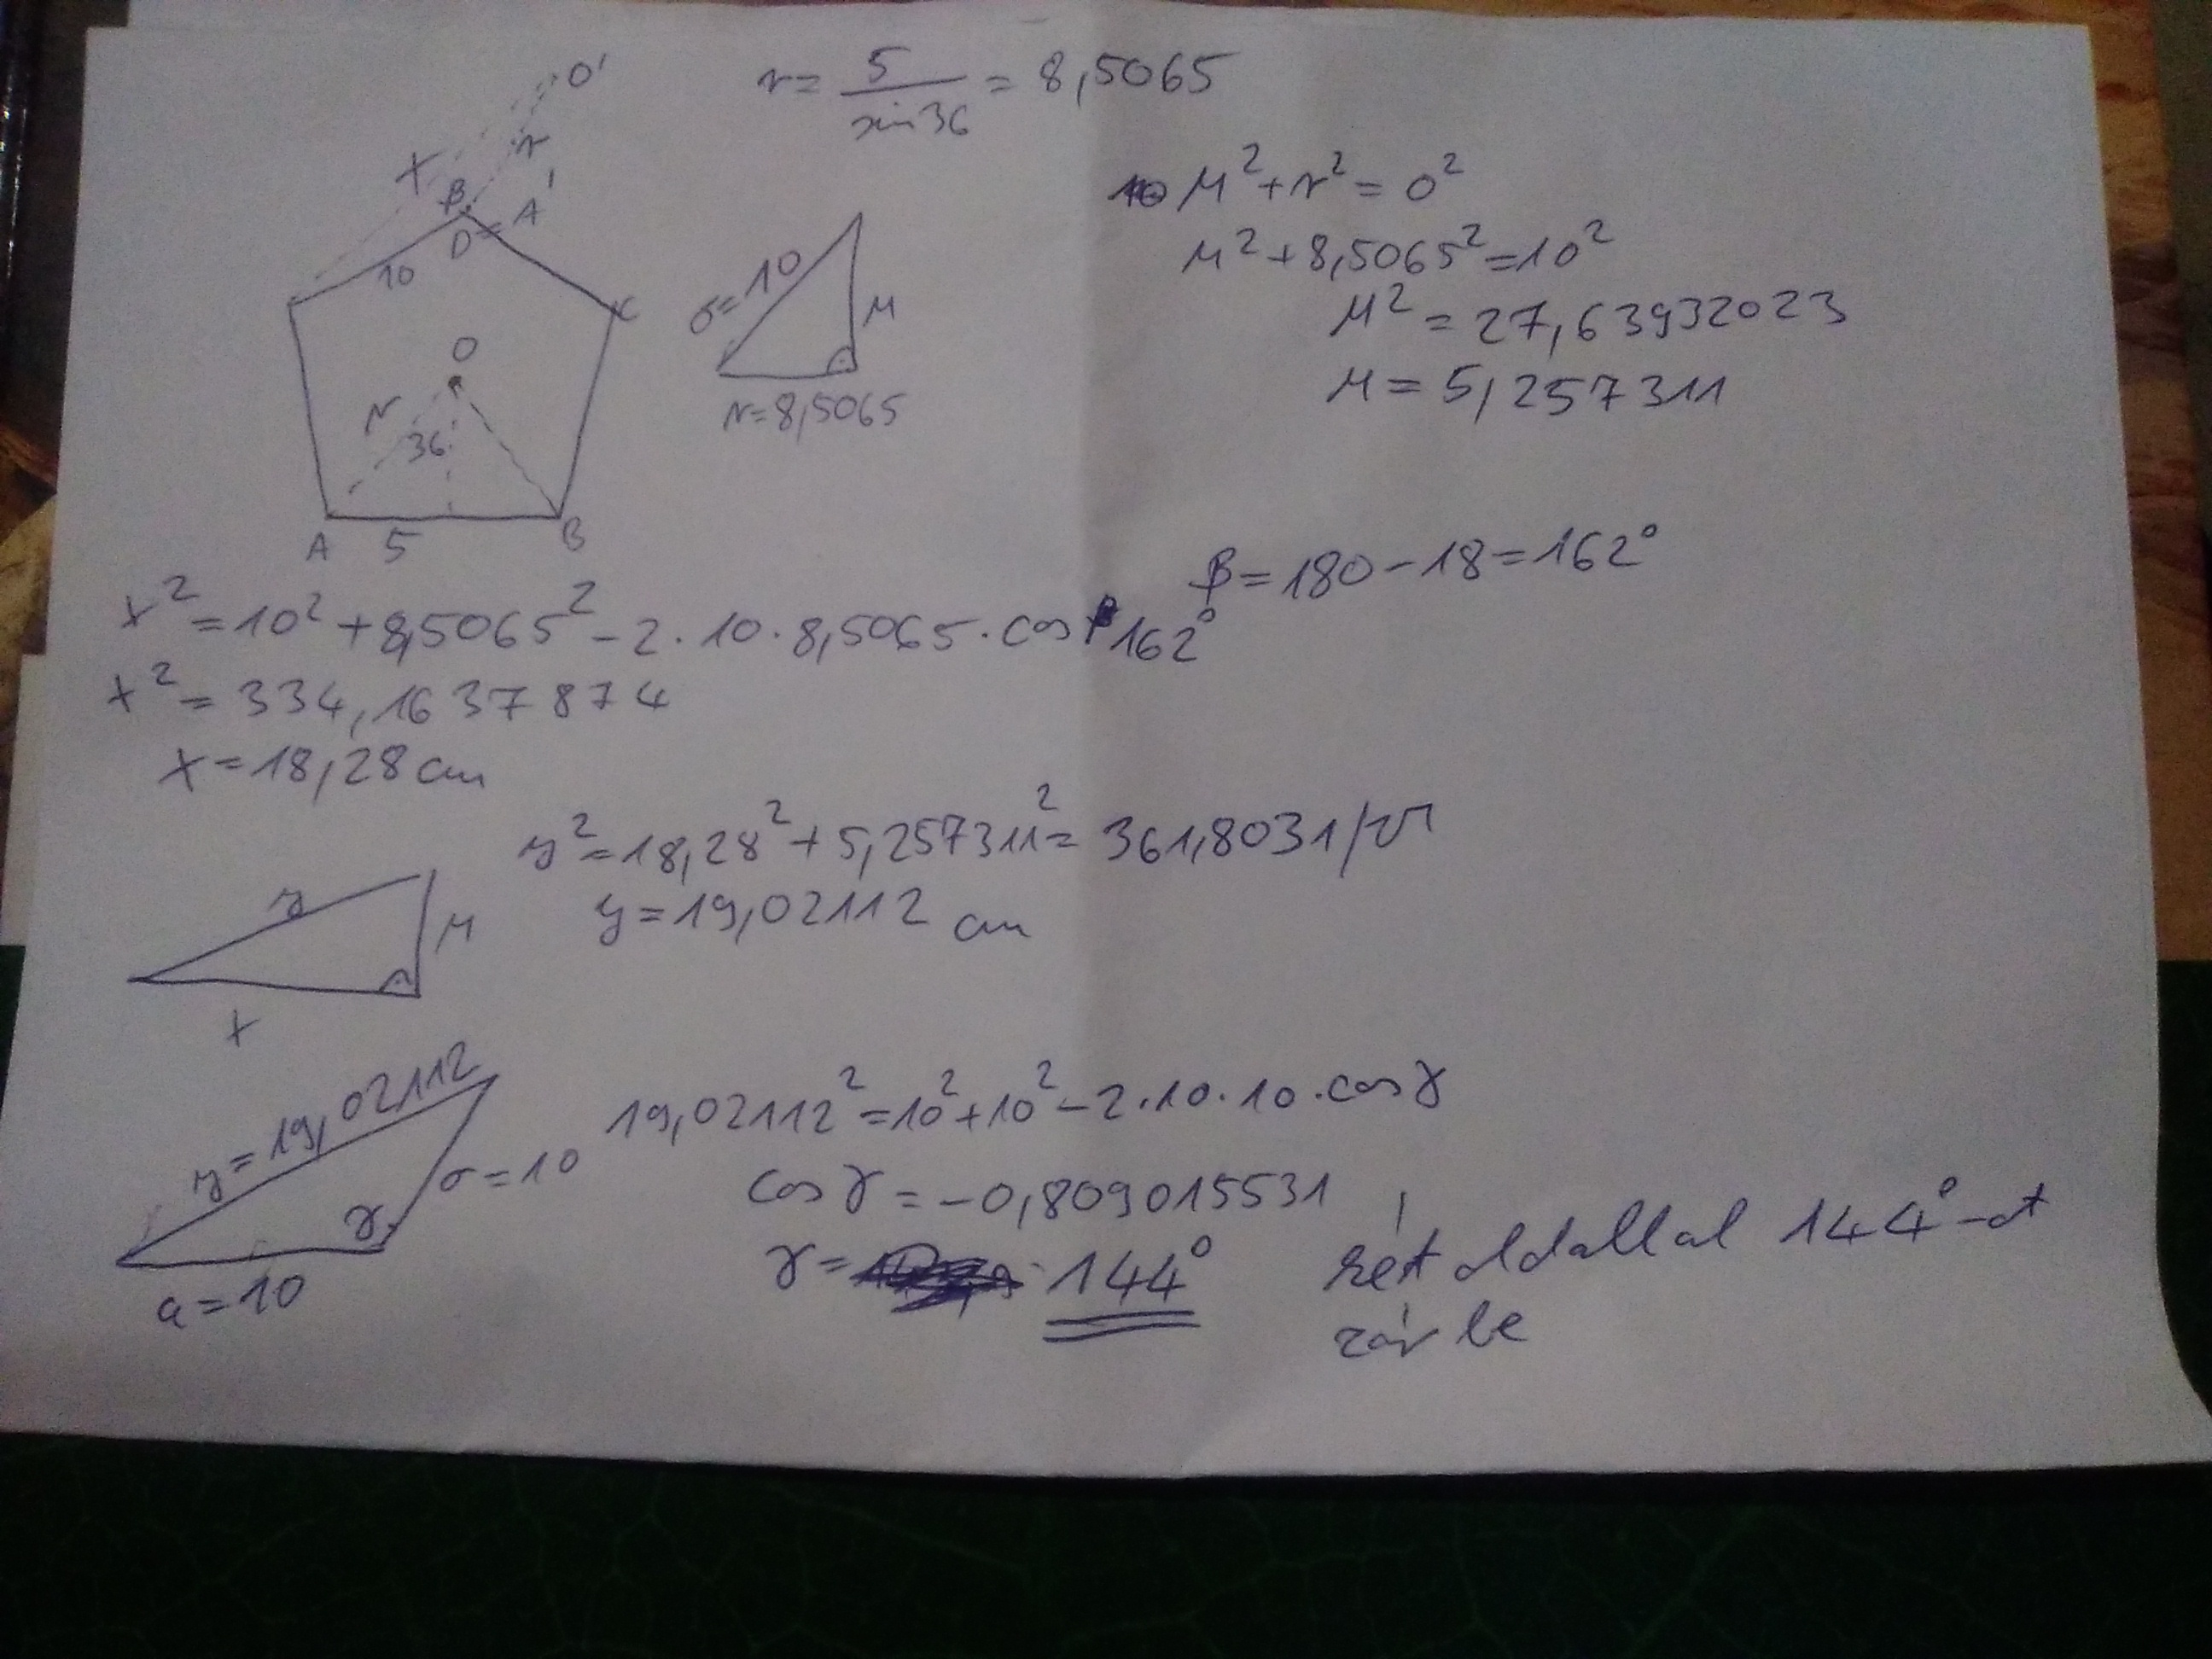 O'
r = 5/sin36 = 8,5065
x
r
β
D=A'
10
C
O
r
36
A 5 B
σ=10
M
r=8,5065
M²+r²=σ²
M²+8,5065²=10²
M²=27,63932023
M=5,257311
β=180-18=162°
x²=10²+8,5065²-2·10·8,5065·cos162°
x²=334,1637874
x=18,28cm
y²=18,28²+5,257311²=361,8031/√
y=19,02112 cm
y
M
x
y=19,02112
σ=10
γ
a=10
19,02112²=10²+10²-2·10·10·cosγ
cosγ=-0,809015531
γ=144°
két oldallal 144°-ot
zár be